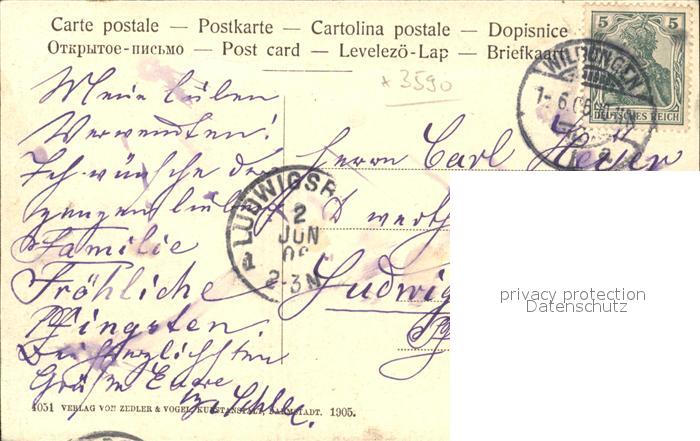 Carte postale — Postkarte — Cartolina postale — Dopisnice
Открытое-письмо — Post card — Levelező-Lap — Briefkaart
×3590
5 5
DEUTSCHES REICH
WILDUNGEN
1.6.06
Meine lieben
Verwandten!
Ich wünsche der
ganzen lieben
Familie
Fröhliche
Pfingsten.
Die herzlichsten
Grüße Eure
Herrn Carl
LUDWIGS
2
JUN
2-3N
Ludwig
privacy protection
Datenschutz
4051 VERLAG VON ZEDLER & VOGEL, KUNSTANSTALT, DARMSTADT. 1905.